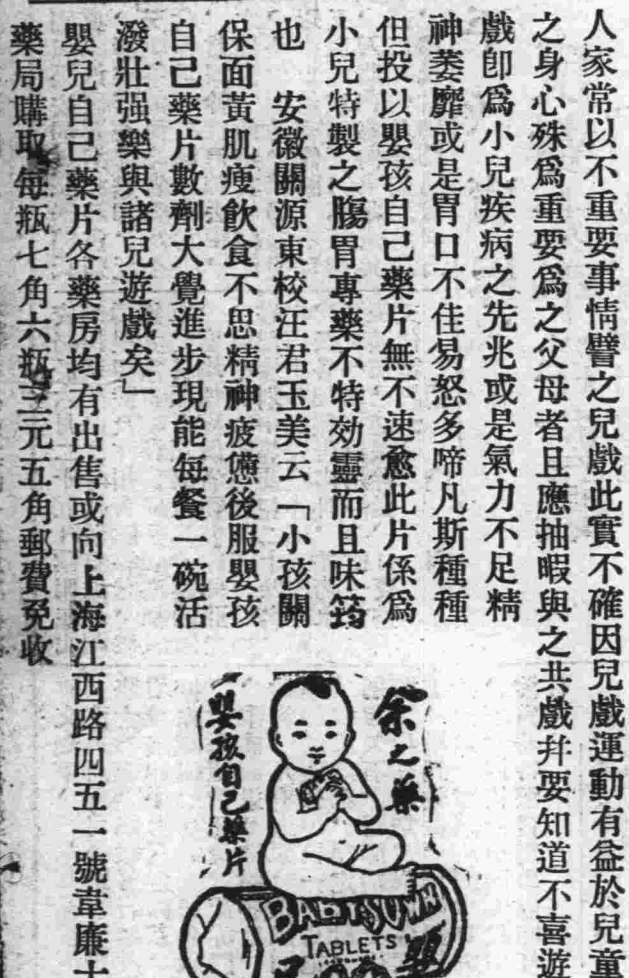 人家常以不重要事情譬之兒戲此實不確因兒戲運動有益於兒童
之身心殊爲重要爲之父母者且應抽暇與之共戲幷要知道不喜遊
戲卽爲小兒疾病之先兆或是氣力不足精
神萎靡或是胃口不佳易怒多啼凡斯種種
但投以嬰孩自己藥片無不速愈此片係爲
小兒特製之腸胃專藥不特効靈而且味
也 安徽關源東校汪君玉美云「小孩關
保面黃肌瘦飲食不思精神疲憊後服嬰孩
自己藥片數劑大覺進步現能每餐一碗活
潑壯强樂與諸兒遊戲矣」
嬰兒自己藥片各藥房均有出售或向上海江西路四五一號韋廉士
藥局購取每瓶七角六瓶三元五角郵費免收
余之藥
嬰孩自己藥片
BABY'S OWN
TABLETS